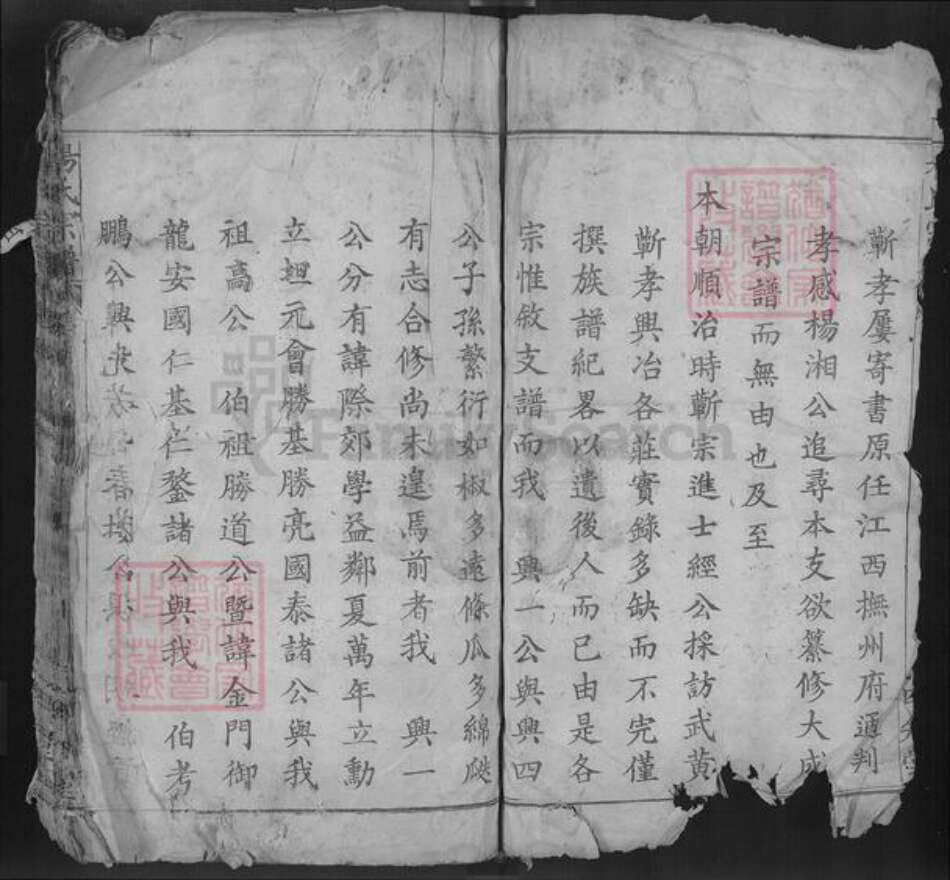 蘄孝屢寄書原任江西撫州府通判
孝感楊湘公追尋本支欲纂修大成
宗譜而無由也及至
本朝順治時蘄宗進士經公採訪武黃
蘄孝興冶各莊實錄多缺而不完僅
撰族譜紀畧以遺後人而已由是各
宗惟敘支譜而我 興一公與興四
公子孫繁衍如椒多遠條瓜多綿瓞
有志合修尚未遑焉前者我 興一
公分有諱際郊學益鄰夏萬年立勳
立坦元會勝基勝亮國泰諸公與我
祖高公 伯祖勝道公暨諱金門御
龍安國仁基仁鍪諸公與我 伯考
鵬公興
楊氏宗譜
FamilySearch